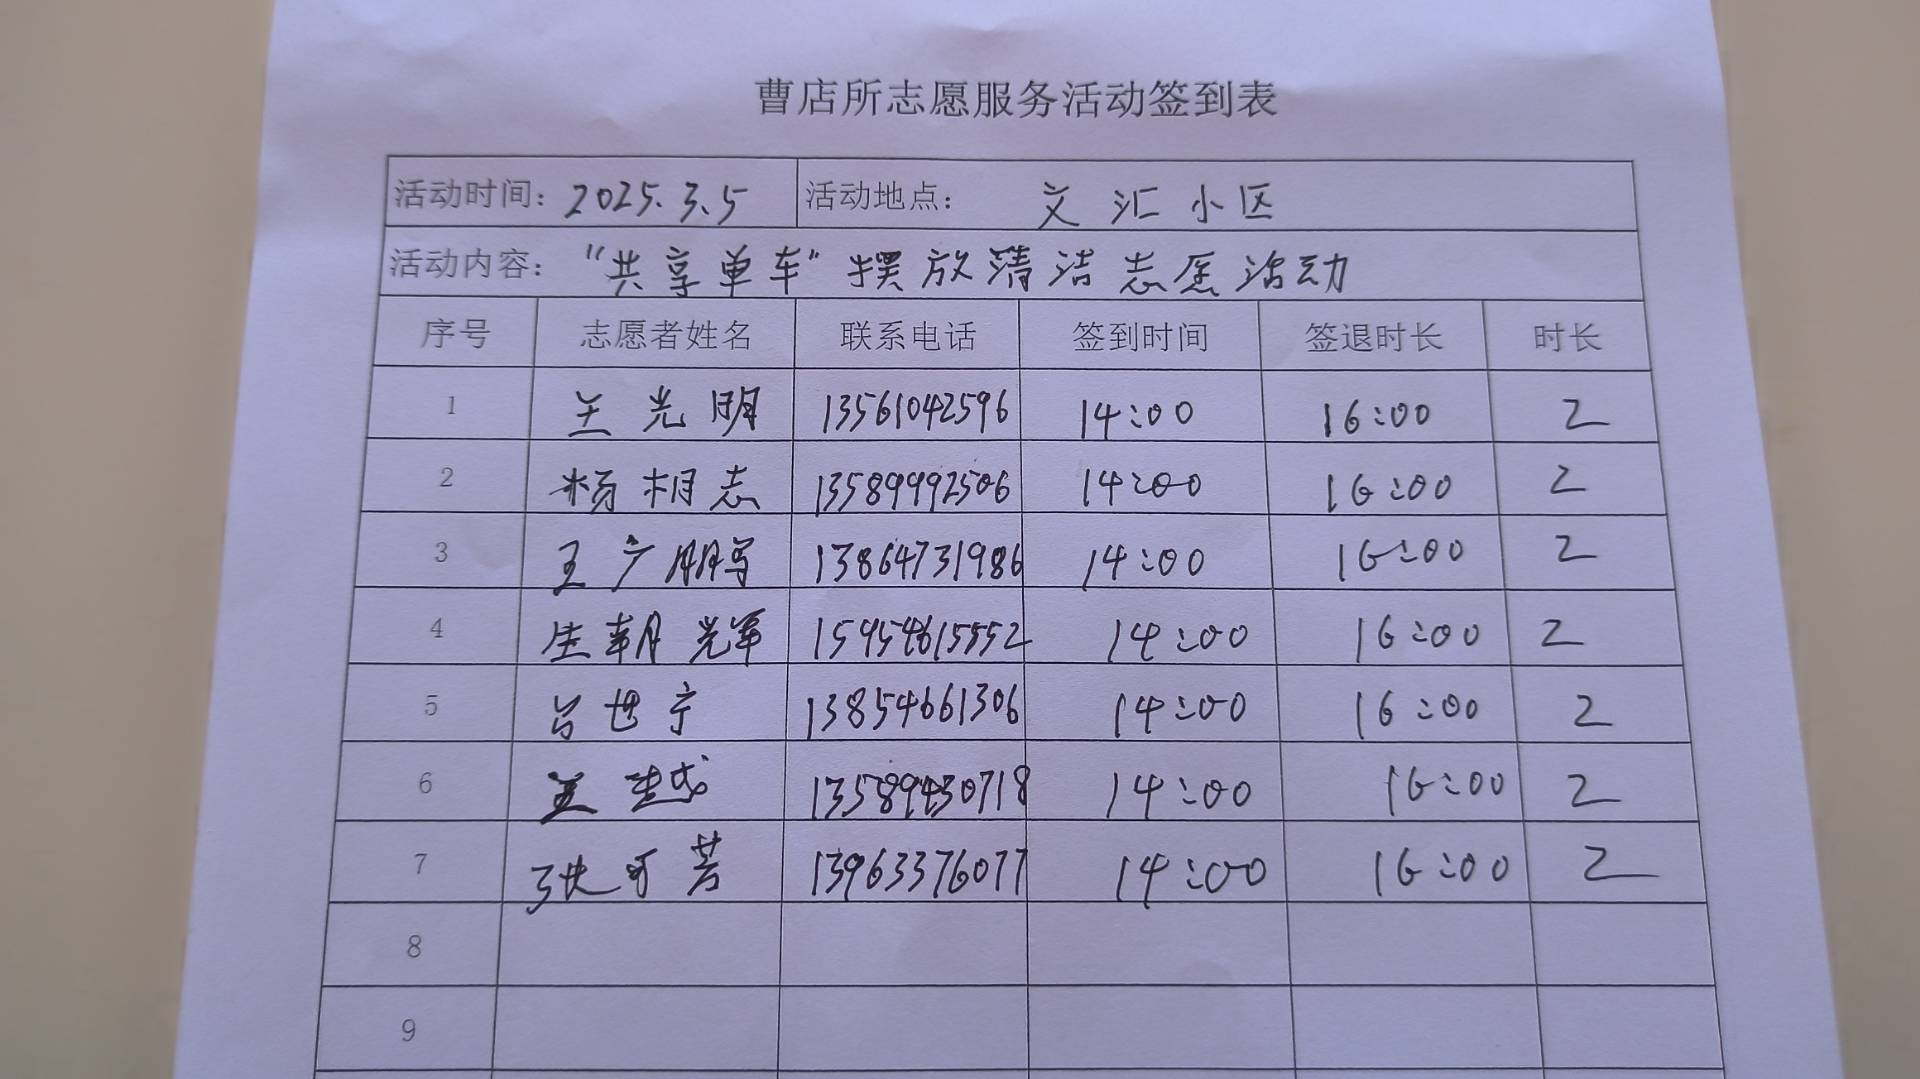 曹店所志愿服务活动签到表
活动时间：2025.3.5 活动地点：文汇小区
活动内容：“共享单车”摆放清洁志愿活动
序号 志愿者姓名 联系电话 签到时间 签退时长 时长
1 王光明 13561042596 14:00 16:00 2
2 杨相志 13589992506 14:00 16:00 2
3 王广鹏 13864731986 14:00 16:00 2
4 生朝光军 15954615552 14:00 16:00 2
5 吕世宁 13854661306 14:00 16:00 2
6 王越 13589430718 14:00 16:00 2
7 张可芳 13963376077 14:00 16:00 2
8
9